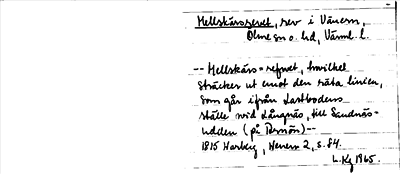 Hellskärsrevet, rev i Vänern,
Ölme sn o. hd, Värml. l.
-- Hellskärs=refwet, hwilket
sträcker ut emot den räta linien,
som går ifrån Lastbodens
ställe wid Långnäs, till Sandnäs-
udden (på Arnön)--
1815 Harberg, Wenern 2, s. 84.
L. Kg 1965.